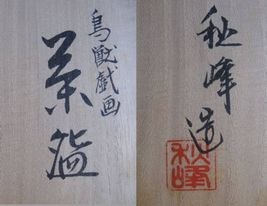 鳥獣戯画
茶盌
秋峰造
秋峰